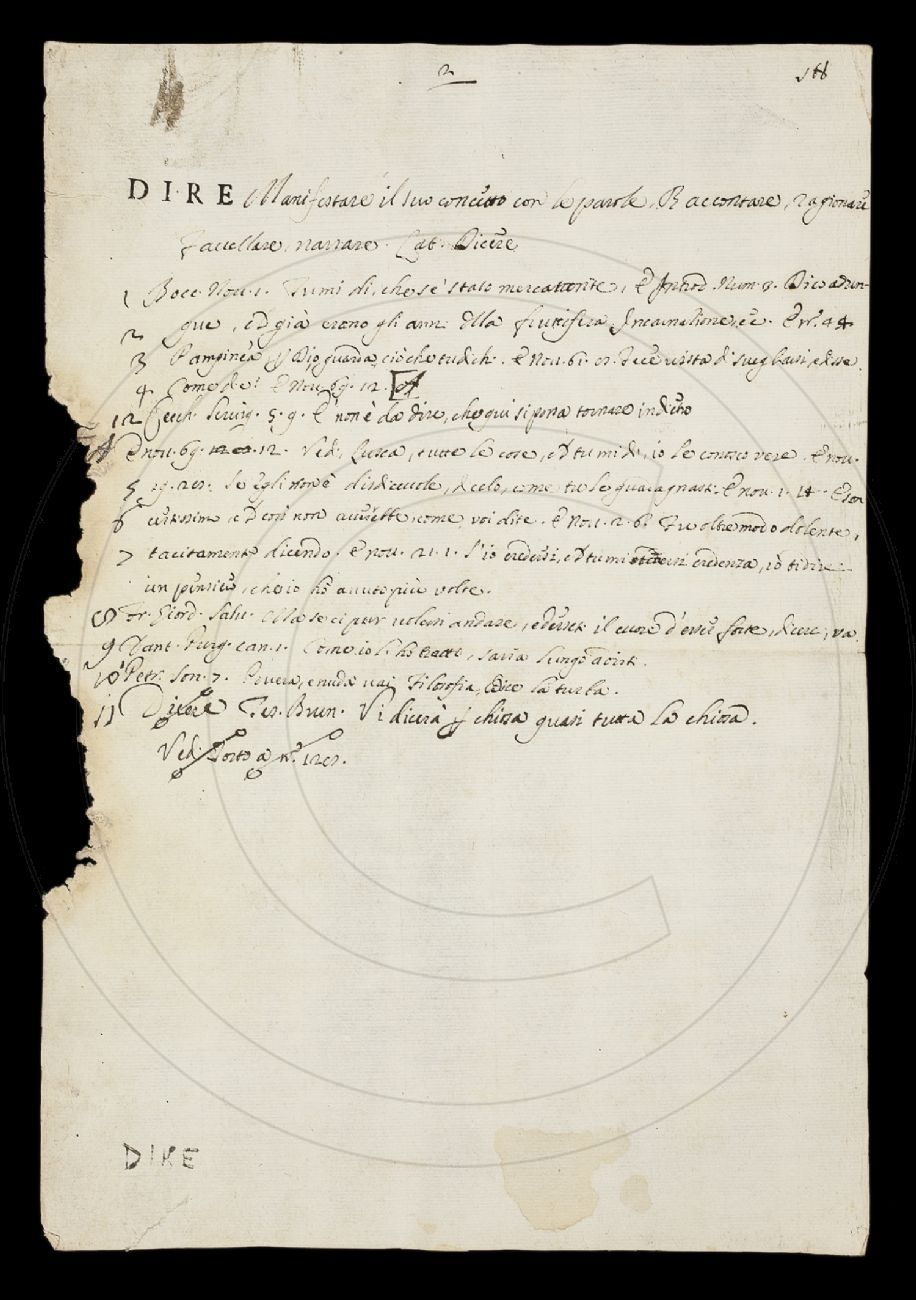 2
DIRE Manifestare il suo concetto con le parole, Raccontare, ragionare
Favellare, narrare. Lat. Dicere
1 Bocc. Nov. 1. Tu mi di, che se' stato mercatante, E Introd. Num. 3. Dico adun-
2 que, ched già erano gli anni della fruttifera Incarnatione, ec. E
3 Pampinea, Dio guarda, ciò che tu dich. E Nov. 61. Fece vista di svegliarsi, e disse.
4 Come di e! E Nov. 69. 12. A
12 Cecch. Servig. 5. 9. E' non è da dire, che qui si possa tornare indietro
A E nov. 69. 12. Vedi, Lusca, tutte le cose, chd tu mi di, io le conosco vere. E nov.
5 Se Egli non è disdicevole, dicelo, come tu le guadagnasti. E nov. 1. 14. E son
6 certissimo, chd così non avverrebbe, come voi dite. E Nov. 2. 6. Fu oltremodo dolente,
7 tacitamente dicendo. E nov. 21. 1. S'io credessi, chd tu mi credenza, io ti direi
un pensiero, che io hò avuto più volte.
8 Fr. Giord. Salv. Ma se ci pur volessi andare, e dicessi il cuore d'esser forte, dicere, va
9 Dant. Purg. can. 1. Come io l'hò tratto, saria lungo a dirti.
10 Petr. son. 7. Povera, e nuda vai Filosofia, Dice la turba.
11 Dicere Tes. Brun. Vi dicerà chiosa quasi tutta la chiosa.
Vedi Torto a
DIRE